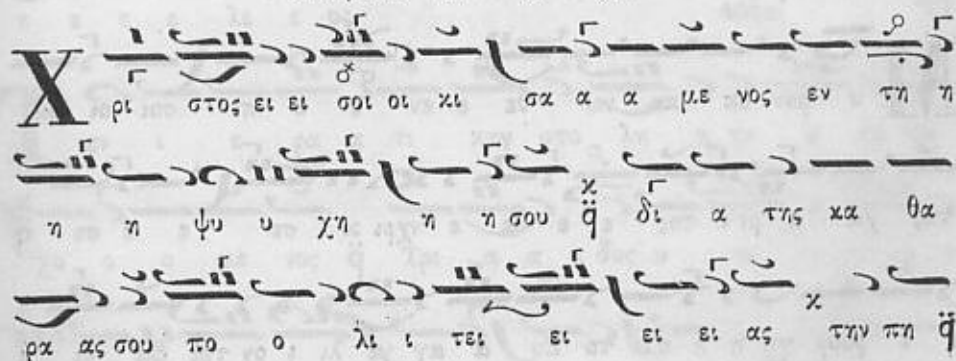 Χρι στος ει ει σοι οι κι σα α α με νος εν τη η
η η ψυ υ χη η η σου q̈ δι α της κα θα
ρα ας σου πο ο λι ι τει ει ει ει ας την πη q̈